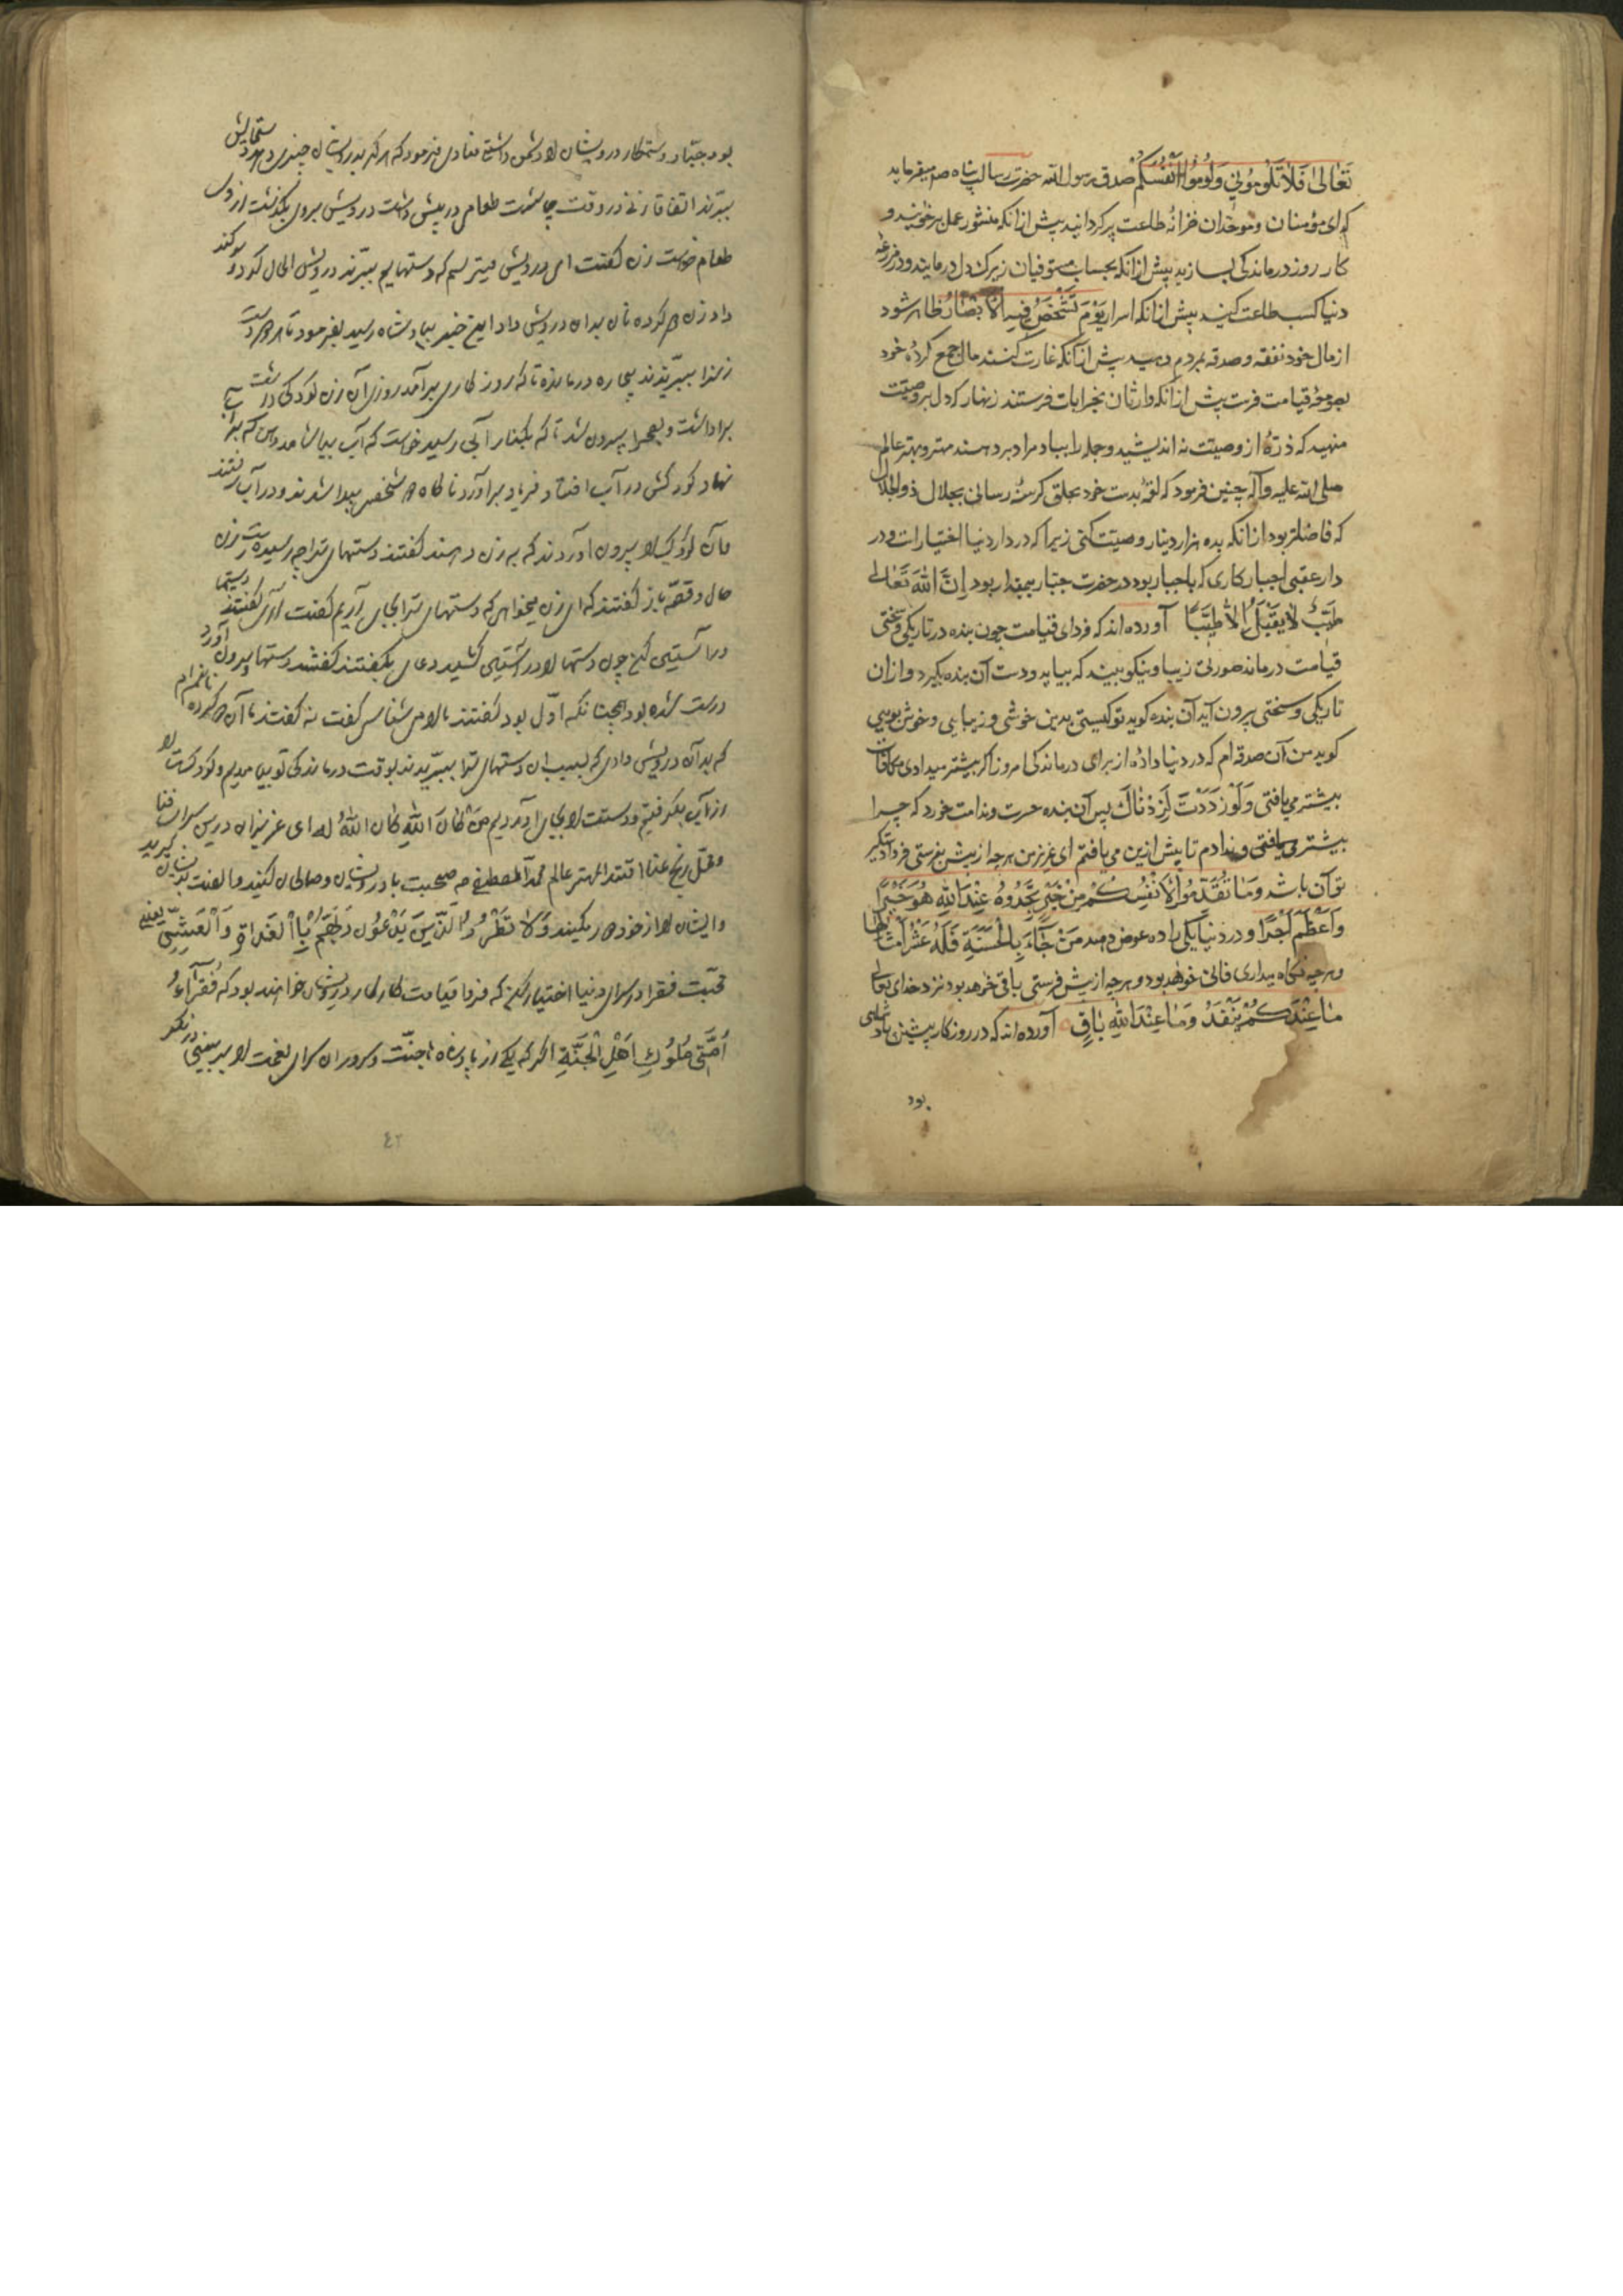 تَعَالىٰ فَلَا تَلُومُونِي وَلُومُوا اَنْفُسَكُمْ صدق رسول الله حضرت رسالت پناه صم میفرماید
که ای مؤمنان و موحدان خزانهٔ طاعت پر کردانید پیش از انکه منشور عمل برخوانند و
کار روز درماندکی بسازید پیش از انکه بحساب مستوفیان زیرک دل درمانید و در مزرعهٔ
دنیا کسب طاعت کنید پیش از انکه اسرار یَوْمَ تَشْخَصُ فِیهِ الْاَبْصَارُ ظاهر شود
از مال خود نفقه و صدقه بمردم دهید پیش از آنکه غارت کنند مال جمع کردهٔ خود
بعرصهٔ قیامت فرست پیش از انکه وارثان بخرابات فرستند زنهار که دل بر وصیت
منهید که ذرّهٔ از وصیت نه اندیشید و جمله را بباد مراد بردهند مهتر و بهتر عالم
صلی الله علیه وآله چنین فرمود که لقمهٔ بدست خود بحلق کرسنهٔ رسانی بجلال ذوالجلال
که فاضلتر بود از انکه بده هزار دینار وصیت کنی زیرا که در دار دنیا اختیارات و در
دار عقبی اجبار کاری که باجبار بود در حضرت جبّار بیمقدار بود اِنَّ اللهَ تَعَالىٰ
طَیِّبٌ لَا یَقْبَلُ اِلَّا طَیِّبًا آورده اند که فردای قیامت چون بنده در تاریکی و سختی
قیامت درماند صورتی زیبا و نیکو بیند که بیاید و دست آن بنده بکیرد و از ان
تاریکی و سختی بیرون آید آن بنده کوید تو کیستی بدین خوشی و زیبایی و خوش بویی
کوید من آن صدقه ام که در دنیا دادهٔ از برای درماندکی امروز اکر بیشتر میدادی مکافات
بیشتر می یافتی وَلَوْ زِدْتَ لَزِدْنَاكَ پس آن بنده حسرت و ندامت خورد که چرا
بیشتر ندادم تا بیش ازین می یافتم ای عزیز من هر چه از پیش بفرستی فردا دستکیر
تو آن باشد وَمَا تُقَدِّمُوا لِاَنْفُسِكُمْ مِنْ خَیْرٍ تَجِدُوهُ عِنْدَ اللهِ هُوَ خَیْرًا
وَاَعْظَمَ اَجْرًا و در دنیا یکی را ده عوض دهند مَنْ جَاءَ بِالْحَسَنَةِ فَلَهُ عَشْرُ اَمْثَالِهَا
و هر چه نکاه میداری فانی خواهد بود و هر چه از پیش فرستی باقی خواهد بود نزد خدای تعالی
مَا عِنْدَكُمْ یَنْفَدُ وَمَا عِنْدَ اللهِ بَاقٍ آورده اند که در روزکار پیشین پادشاهی
بود
بود جبّار و ستمکار درویشان را دشمن داشتی منادی فرمود که هر که بدرویشان چیزی دهد دستهایش
ببرّند اتفاقا زنی در وقت چاشت طعامی در پیش داشت درویش بروی بکذشت از وی
طعام خواست زن کفت ای درویش میترسم که دستهایم ببرّند درویش الحاح کرد و سوکند
داد زن کرده نان بدان درویش داد این خبر بپادشاه رسید بفرمود تا هر دو دست
زنرا ببرّیدند بیچاره درمانده تا که روزکاری برآمد روزی آن زن کودکی در پشت
برداشت و بصحرا بیرون شد تا که بکنار آبی رسید خواست که آب بیاشامد
نهاد کودکش در آب افتاد فریاد برآورد ناکاه دو شخص پیدا شدند و در آب رفتند
و آن کودک را بیرون آوردند که به زن دهند کفتند دستهای ترا چه رسیده است زن
حال و قصّه باز کفت کفتند که ای زن میخواهی که دستهای ترا بجای آریم کفت آری کفتند دستها
در آستین کن چون دستها را در آستین کشید دعای بکفتند کفتند دستها بیرون آورد
درست شده بود همچنانکه اوّل بود کفتند ما را می شناسی کفت نه کفتند ما آن دو کرده نانیم
که بدان درویش دادی که بسبب آن دستهای ترا ببرّیدند بوقت درماندکی تو بیامدیم و کودکت را
از آب بکرفتیم و دستت را بجای آوردیم مَنْ كَانَ لِلّٰهِ كَانَ اللهُ لَهُ ای عزیزان درین سرای فنا
و محل رنج و عنا اقتدا بمهتر عالم محمّد المصطفی صم صحبت با درویشان و صالحان کنید و الفت بدیشان کیرید
و ایشان را از خود دور مکنید وَلَا تَطْرُدِ الَّذِینَ یَدْعُونَ رَبَّهُمْ بِالْغَدَاةِ وَالْعَشِیِّ یعنی
محبّت فقرا در سرای دنیا اختیار کن که فردا قیامت کار کار درویشان خواهد بود که فُقَرَاءُ
اُمَّتِی مُلُوكُ اَهْلِ الْجَنَّةِ اکر که یکی از پادشاه جنّت و سروران سرای نعمت را ببینی در نکر
٤٢